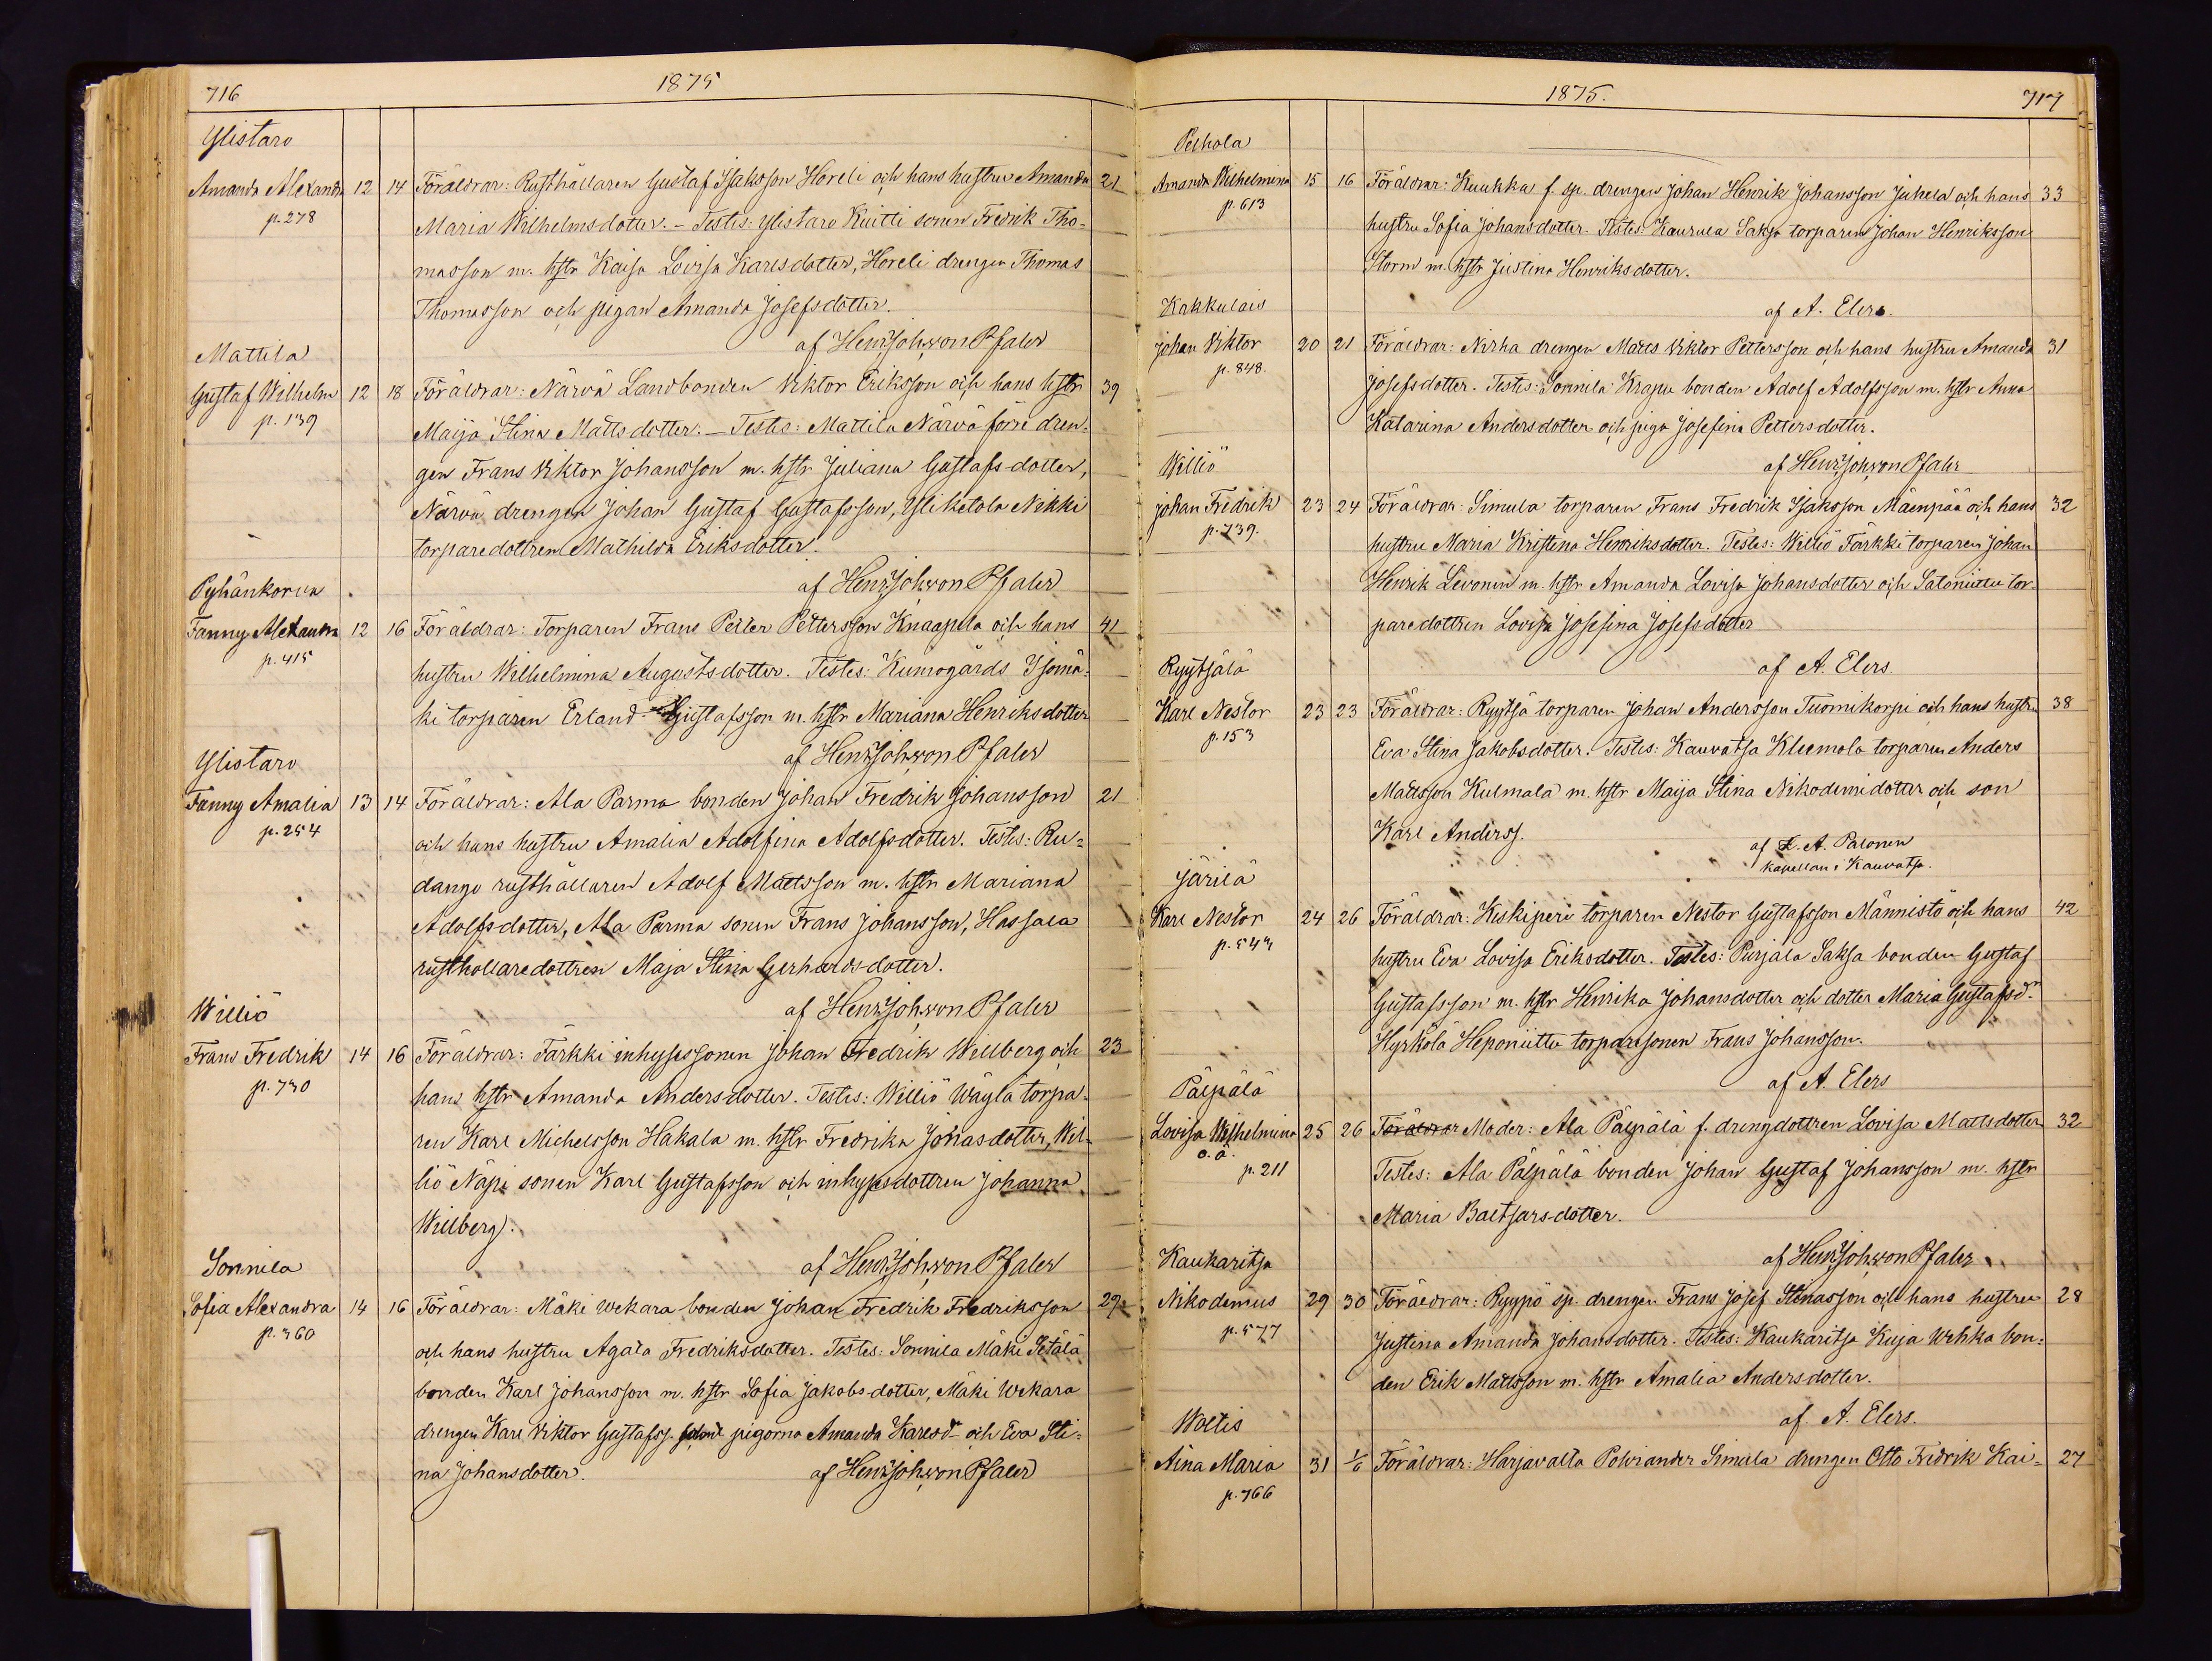 716 1875
Ylistaro
Amanda Alexandra 12 14 Föräldrar: Rusthållaren Gustaf Isaksson Horeli och hans hustru Amanda 21
p. 278 Maria Wilhelmsdotter. – Testes: Ylistaro Knitti sonen Fredrik Tho-
masson m. hstr Kaisa Lovisa Karlsdotter, Horeli drengen Thomas
Thomasson och pigan Amanda Josefsdotter.
af Henr. Joh. von Pfaler
Mattila
Gustaf Wilhelm 12 18 Föräldrar: Närvä Landbonden Viktor Eriksson och hans hstr 39
p. 139 Maija Stina Mattsdotter. – Testes: Mattila Närvä förre dren-
gen Frans Viktor Johansson m. hstr Juliana Gustafs-dotter,
Närvä drengen Johan Gustaf Gustafsson, Yliketola Nikki
torparedottren Mathilda Eriksdotter.
af Henr. Joh. von Pfaler
Pyhänkorva
Fanny Alexandra 12 16 Föräldrar: Torparen Frans Petter Pettersson Knaapila och hans 41
p. 415 hustru Wilhelmina Augustsdotter. Testes: Kumogårds Isomä-
ki torparen Erland Gustafsson m. hstr Mariana Henriksdotter
af Henr. Joh. von Pfaler
Ylistaro
Fanny Amalia 13 14 Föräldrar: Ala Parma bonden Johan Fredrik Johansson 21
p. 254 och hans hustru Amalia Adolfina Adolfsdotter. Testes: Ru-
dango rusthållaren Adolf Mattsson m. hstr Mariana
Adolfsdotter, Ala Parma sonen Frans Johansson, Hassala
rusthollaredottren Maja Stina Gerhardsdotter.
af Henr. Joh. von Pfaler
Williö
Frans Fredrik 14 16 Föräldrar: Tärkki inhysessonen Johan Fredrik Willberg och 23
p. 730 hans hstr Amanda Andersdotter. Testes: Williö Wäylä torpa-
ren Karl Michelsson Hakala m. hstr Fredrika Johasdotter, Wil-
liö Näpi sonen Karl Gustafsson och inhysesdottren Johanna
Willberg.
af Henr. Joh. von Pfaler
Sonnila
Sofia Alexandra 14 16 Föräldrar: Mäki Wekara bonden Johan Fredrik Fredriksson 29
p. 360 och hans hustru Agata Fredriksdotter. Testes: Sonnila Mäki Jetälä
bonden Karl Johansson m. hstr Sofia Jakobs-dotter, Mäki Wekara
drengen Karl Viktor Gustafss. pigorna Amanda Karlsdr och Eva Sti-
na Johansdotter. af Henr. Joh. von Pfaler
1875. 717
Peihola
Amanda Wilhelmina 15 16 Föräldrar: Kuukka f. sp. drengen Johan Henrik Johansson Juhela och hans 33
p. 613 hustru Sofia Johansdotter. Testes: Kaurula Saksa torparen Johan Henriksson
Storm m. hstr Justina Henriksdotter.
af A. Elers.
Kakkulais
Johan Viktor 20 21 Föräldrar: Nirha drengen Matts Viktor Pettersson och hans hustru Amanda 31
p. 848. Josefsdotter. Testes: Sonnila Krapu bonden Adolf Adolfsson m. hstr Anna
Katarina Andersdotter och piga Josefina Pettersdotter.
af Henr. Joh. von Pfaler
Williö
Johan Fredrik 23 24 Föräldrar: Simula torparen Frans Fredrik Isaksson Mäenpää och hans 32
p. 739. hustru Maria Kristina Henriksdotter. Testes: Williö Tärkki torparen Johan
Henrik Levonen m. hstr Amanda Lovisa Johansdotter och Satoniittu tor-
paredottren Lovisa Josefina Josefsdotter
af A. Elers.
Ryytsälä
Karl Nestor 23 23 Föräldrar: Ryytsä torparen Johan Andersson Tuomikorpi och hans hustru 38
p. 153 Eva Stina Jakobsdotter. Testes: Kauvatsa Kleemola torparen Anders
Mattsson Kulmala m. hstr Maija Stina Nikodemidotter och son
Karl Anderss.
af F. A. Palonen
kapellan i Kauvatsa.
Järilä
Karl Nestor 24 26 Föräldrar: Keskiperi torparen Nestor Gustafsson Männistö och hans 42
p. 543 hustru Eva Lovisa Eriksdotter. Testes: Purjala Saksa bonden Gustaf
Gustafsson m. hstr Henrika Johansdotter och dotter Maria Gustafsdr
Hyrkölä Heponiittu torparesonen Frans Johansson.
af A. Elers
Pälpälä
Lovisa Wilhelmina 25 26 Föräldrar Moder: Ala Pälpälä f. drengdottren Lovisa Mattsdotter 32
o. ä. p. 211 Testes: Ala Pälpälä bonden Johan Gustaf Johansson m. hstr
Maria Baltsarsdotter.
af Henr. Joh. von Pfaler
Kaukaritsa
Nikodemus 29 30 Föräldrar: Ryypö sp. drengen Frans Josef Stenasson och hans hustru 28
p. 577 Justina Amanda Johansdotter. Testes: Kaukaritsa Kuja Uhka bon-
den Erik Mattsson m. hstr Amalia Andersdotter.
af A. Elers.
Woitis
Aina Maria 31 1/6 Föräldrar: Harjavalta Polviander Simula drengen Otto Fredrik Kai- 27
p. 766